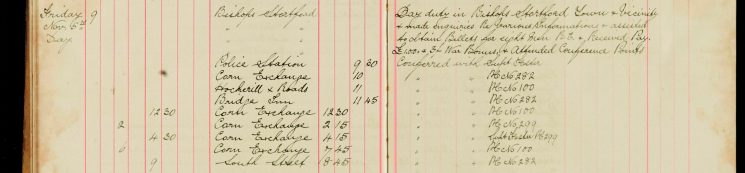 Friday 9 Bishops Stortford Day duty in Bishops Stortford Town & Vicinity
Nov. 6th " " & made Enquiries Re Various Informations & assisted
Day to obtain Billets for eight Men R.E. & Received Pay.
& War Bonus & Attended Conference Points
Police Station 9 30 Conferred with Supt
Corn Exchange 10 " " PC No 282
Hockerill X Roads 11 " " PC No 100
Bridge Inn 11 45 " " PC No 282
12 30 Corn Exchange 12 30 " " PC No 100
2 Corn Exchange 2 15 " " PC No 299
4 30 Corn Exchange 4 15 " " Supt PC 299
6 Corn Exchange 7 45 " " PC No 100
9 South Street 8 45 " " PC No 282